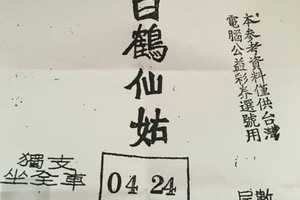 本參考資料僅供台灣
電腦公益彩券選號用
白鶴仙姑
獨支
坐全車
04 24
數